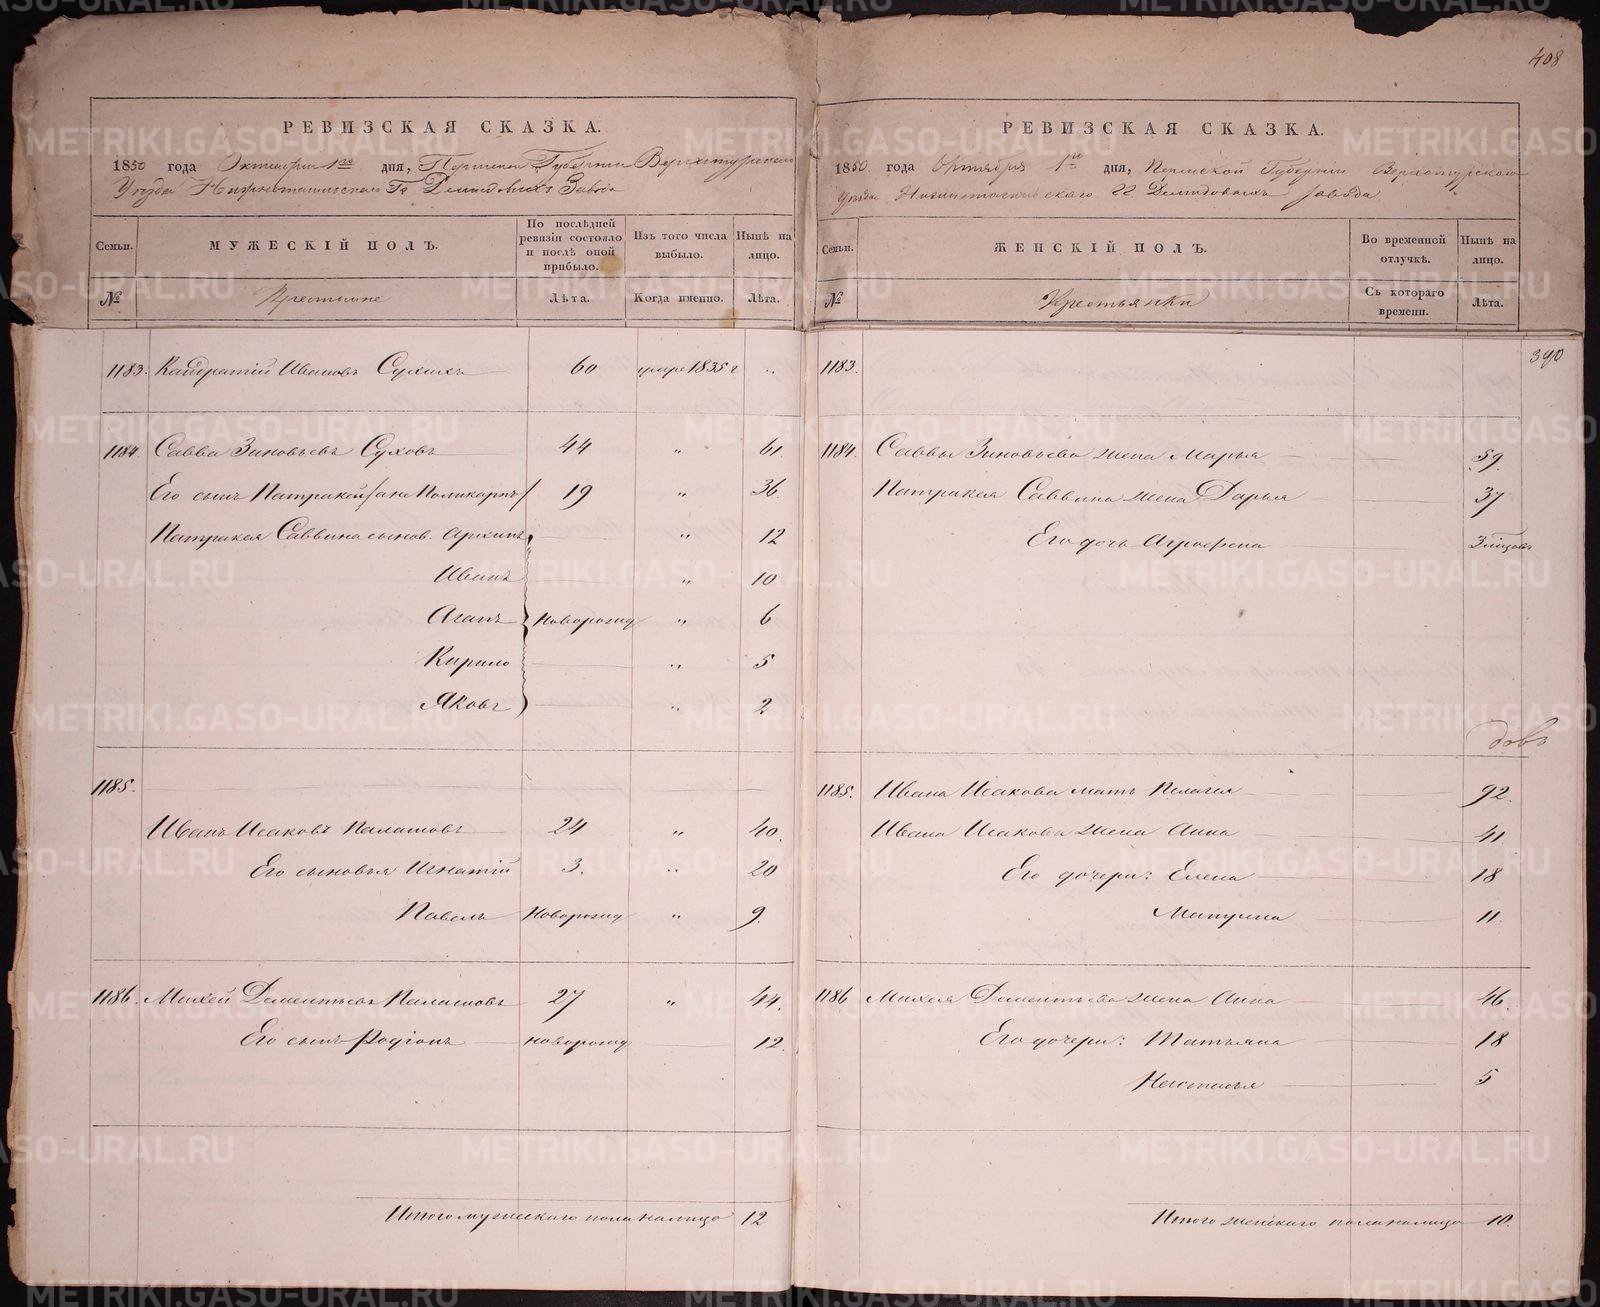 408
РЕВИЗСКАЯ СКАЗКА.
1850 года Октября 1го дня, Пермской Губерніи Верхотурскаго
Уѣзда Нижнетагильскаго Гг Демидовыхъ Завода
Семьи.
МУЖЕСКІЙ ПОЛЪ.
По послѣдней ревизіи состояло и послѣ оной прибыло.
Изъ того числа выбыло.
Нынѣ на лицо.
№
Крестьяне
Лѣта.
Когда именно.
Лѣта.
1183. Кандратій Ивановъ Сухихъ 60 умре 1835 г "
1184. Савва Зиновьевъ Суховъ 44 " 61.
Его сынъ Патракей /онъ Поликарпъ/ 19 " 36.
Патракея Саввина сынов. Архипъ " 12
Иванъ " 10
Агапъ новорожд " 6
Кирило " 5
Яковъ " 2
1185.
Иванъ Исаковъ Палашовъ 24 " 40.
Его сыновья Игнатій 3. " 20
Павелъ Новорожд " 9.
1186. Михей Дементьевъ Палашовъ 27 " 44.
Его сынъ Родіонъ новорожд 12.
Итого мужескаго пола налицо 12
РЕВИЗСКАЯ СКАЗКА.
1850 года Октября 1го дня, Пермской Губерніи Верхотурскаго
Уѣзда Нижнетагильскаго ГГ Демидовыхъ завода
Семьи.
ЖЕНСКІЙ ПОЛЪ.
Во временной отлучкѣ.
Нынѣ на лицо.
№
Крестьянки
Съ котораго времени.
Лѣта.
390
1183.
1184. Саввы Зиновьева жена Марья 59.
Патракея Саввина жена Дарья 37
Его дочь Агрофена 3 мѣсцовъ
1185. Ивана Исакова мать Пелагея 92.
Ивана Исакова жена Анна 41.
Его дочери: Елена 18
Матрена 11.
1186 Михея Дементьева жена Анна 46.
Его дочери: Татьяна 18
Настасья 5
Итого женскаго пола налицо 10.
METRIKI.GASO-URAL.RU